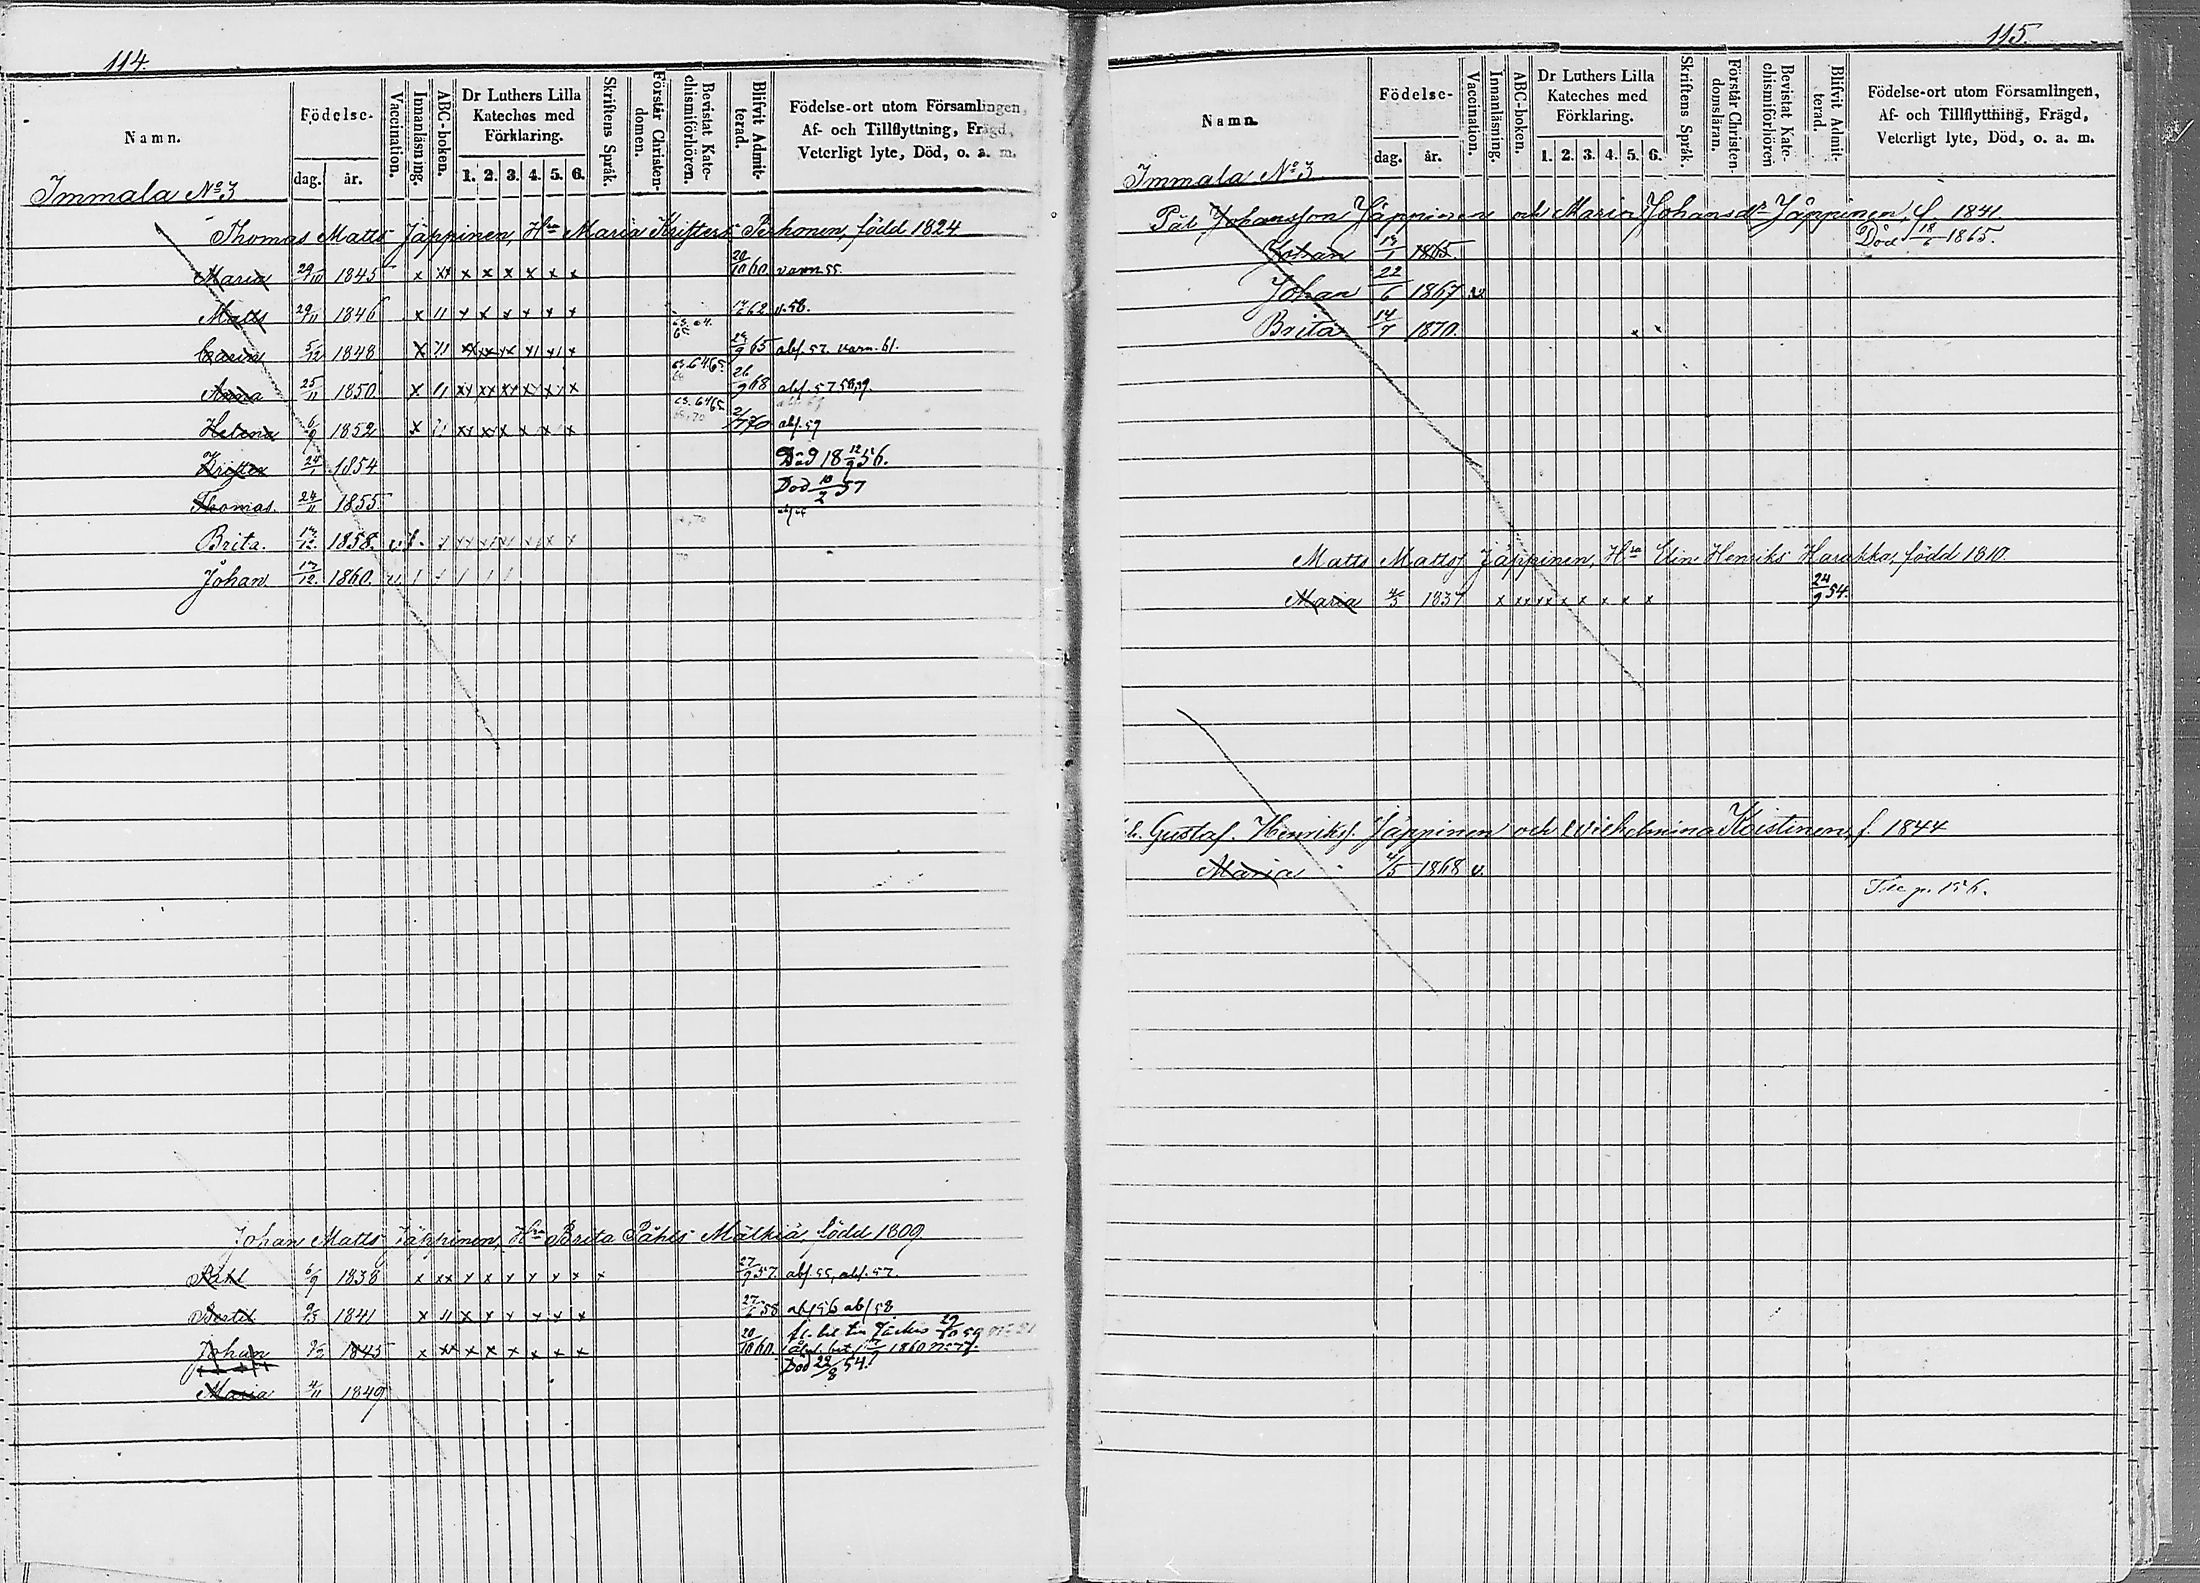 114.
Namn. Födelse- dag. år. Vaccination. Innanläsning. ABC-boken. Dr Luthers Lilla Kateches med Förklaring. 1. 2. 3. 4. 5. 6. Skriftens Språk. Förstår Christendomen. Bevistat Katechismiförhören. Blifvit Admitterad. Födelse-ort utom Församlingen, Af- och Tillflyttning, Frägd, Veterligt lyte, Död, o. a. m.
Immala No 3
Thomas Matts Jäppinen, Hru Maria Kristers Perhonen, född 1824
Maria 29/10 1845 x xx x x x x x x 20/10 60 varn 55.
Matts 1846 x 11 x x x x x x 62
Carin 5/12 1848 65 abs. 57. varn. 61.
Anna 25/11 1850 26/9 68 abs. 57 58,59.
Helena 6/9 1852 70 abs. 59
Krister 24/1 1854 Död 18 12/9 56.
Thomas. 24/11 1855 Död 10/2 57
Brita. 17/12. 1858.
Johan 17/12. 1860.
Johan Matts Jäppinen, Hru Brita Påhls Mälkiä, född 1809
Påhl 6/9 1838 x xx x x x x x x x 27/9 57. abs. 55, abs. 57.
Bertil 1841 x 11 x x x x x x 27/6 58 abs 56 abs 58
Johan 1845 x xx x x x x x x 20/10 60.
Död 22/8 54.
Maria 4/11 1849
115.
Namn. Födelse- dag. år. Vaccination. Innanläsning. ABC-boken. Dr Luthers Lilla Kateches med Förklaring. 1. 2. 3. 4. 5. 6. Skriftens Språk. Förstår Christendomsläran. Bevistat Katechismiförhören Blifvit Admitterad. Födelse-ort utom Församlingen, Af- och Tillflyttning, Frägd, Veterligt lyte, Död, o. a. m.
Immala No 3
Pål Johansson Jäppinen och Maria Johansdr Jäppinen, f. 1841
Johan 13/1 1865. Död 18/6 1865.
Johan 22/6 1867 v.
Brita 14/7 1870.
Matts Matts Jäppinen, Hru Elin Henriks Harakka, född 1810.
Maria 4/3 1837 24/9 54.
Gustaf. Henriks. Jäppinen och Wilhelmina Koistinen, f. 1844
Maria 4/5 1868 v.